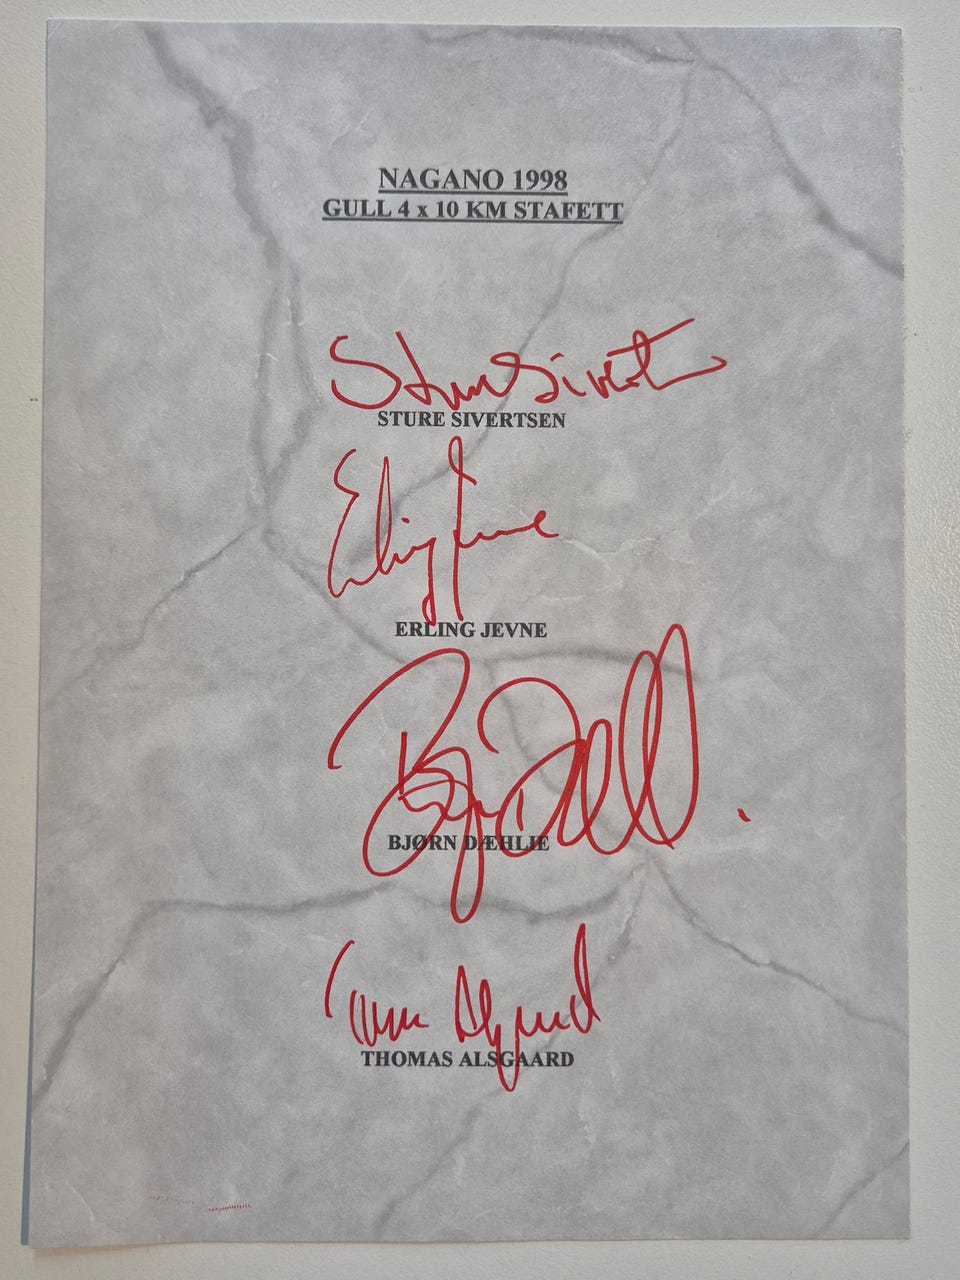 NAGANO 1998
GULL 4 x 10 KM STAFETT
Sture Sivertsen
STURE SIVERTSEN
Erling Jevne
ERLING JEVNE
BJØRN DÆHLIE
THOMAS ALSGAARD